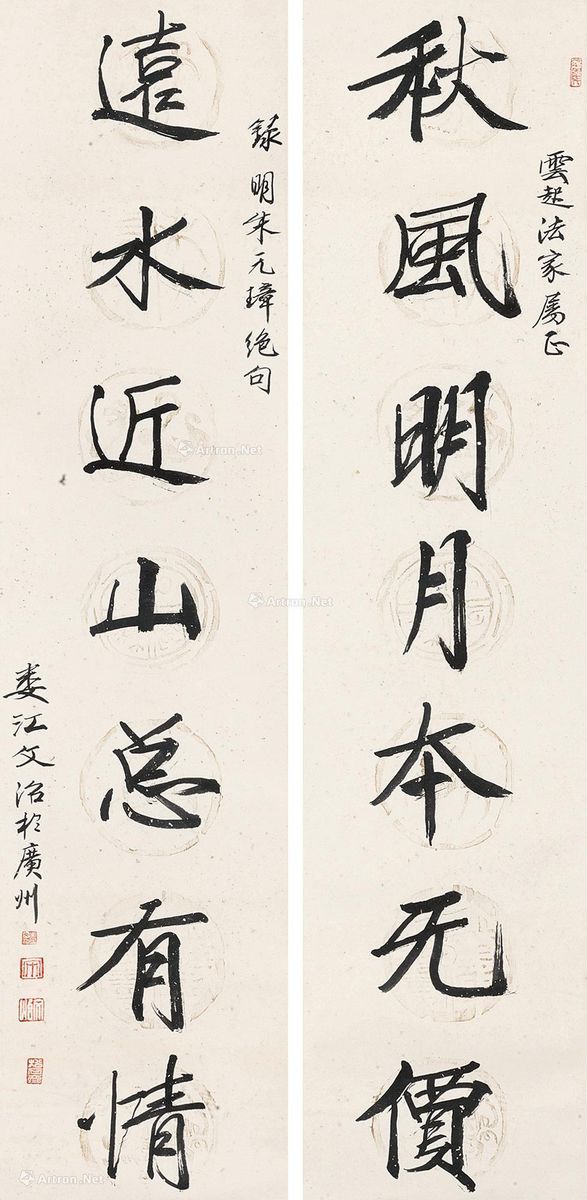 雲起法家属正
秋風明月本无價
錄明朱元璋绝句
遠水近山总有情
娄江文治於廣州
Artron.Net
Artron.Net
Artron.Net